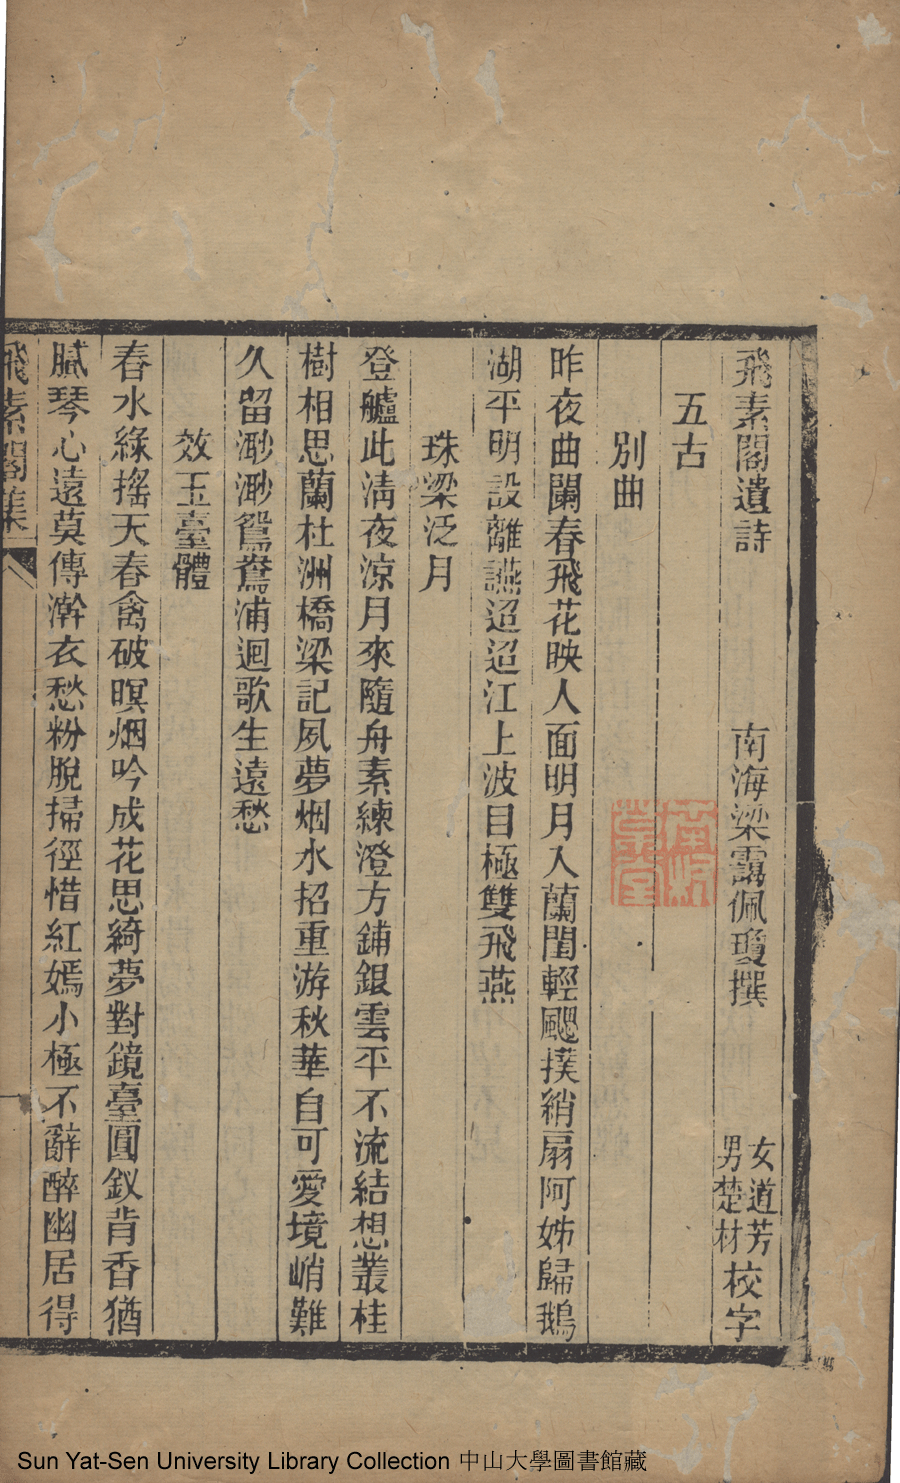 飛素閣遺詩
南海梁靄佩瓊撰
女道芳
男楚材
校字
五古
別曲
昨夜曲闌春飛花映人面明月入蘭閨輕颸撲綃扇阿姊歸鵝
湖平明設離讌迢迢江上波目極雙飛燕
珠梁泛月
登艫此淸夜涼月來隨舟素練澄方鋪銀雲平不流結想叢桂
樹相思蘭杜洲橋梁記夙夢烟水招重游秋華自可愛境峭難
久留渺渺鴛鴦浦迴歌生遠愁
效玉臺體
春水綠搖天春禽破暝烟吟成花思綺夢對鏡臺圓釵背香猶
膩琴心遠莫傳澣衣愁粉脫掃徑惜紅嫣小極不辭醉幽居得
飛素閣集
Sun Yat-Sen University Library Collection 中山大學圖書館藏